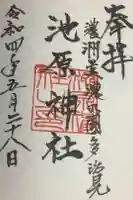 奉拝
濃州美濃国多治見
池原神社
令和四年五月二十八日